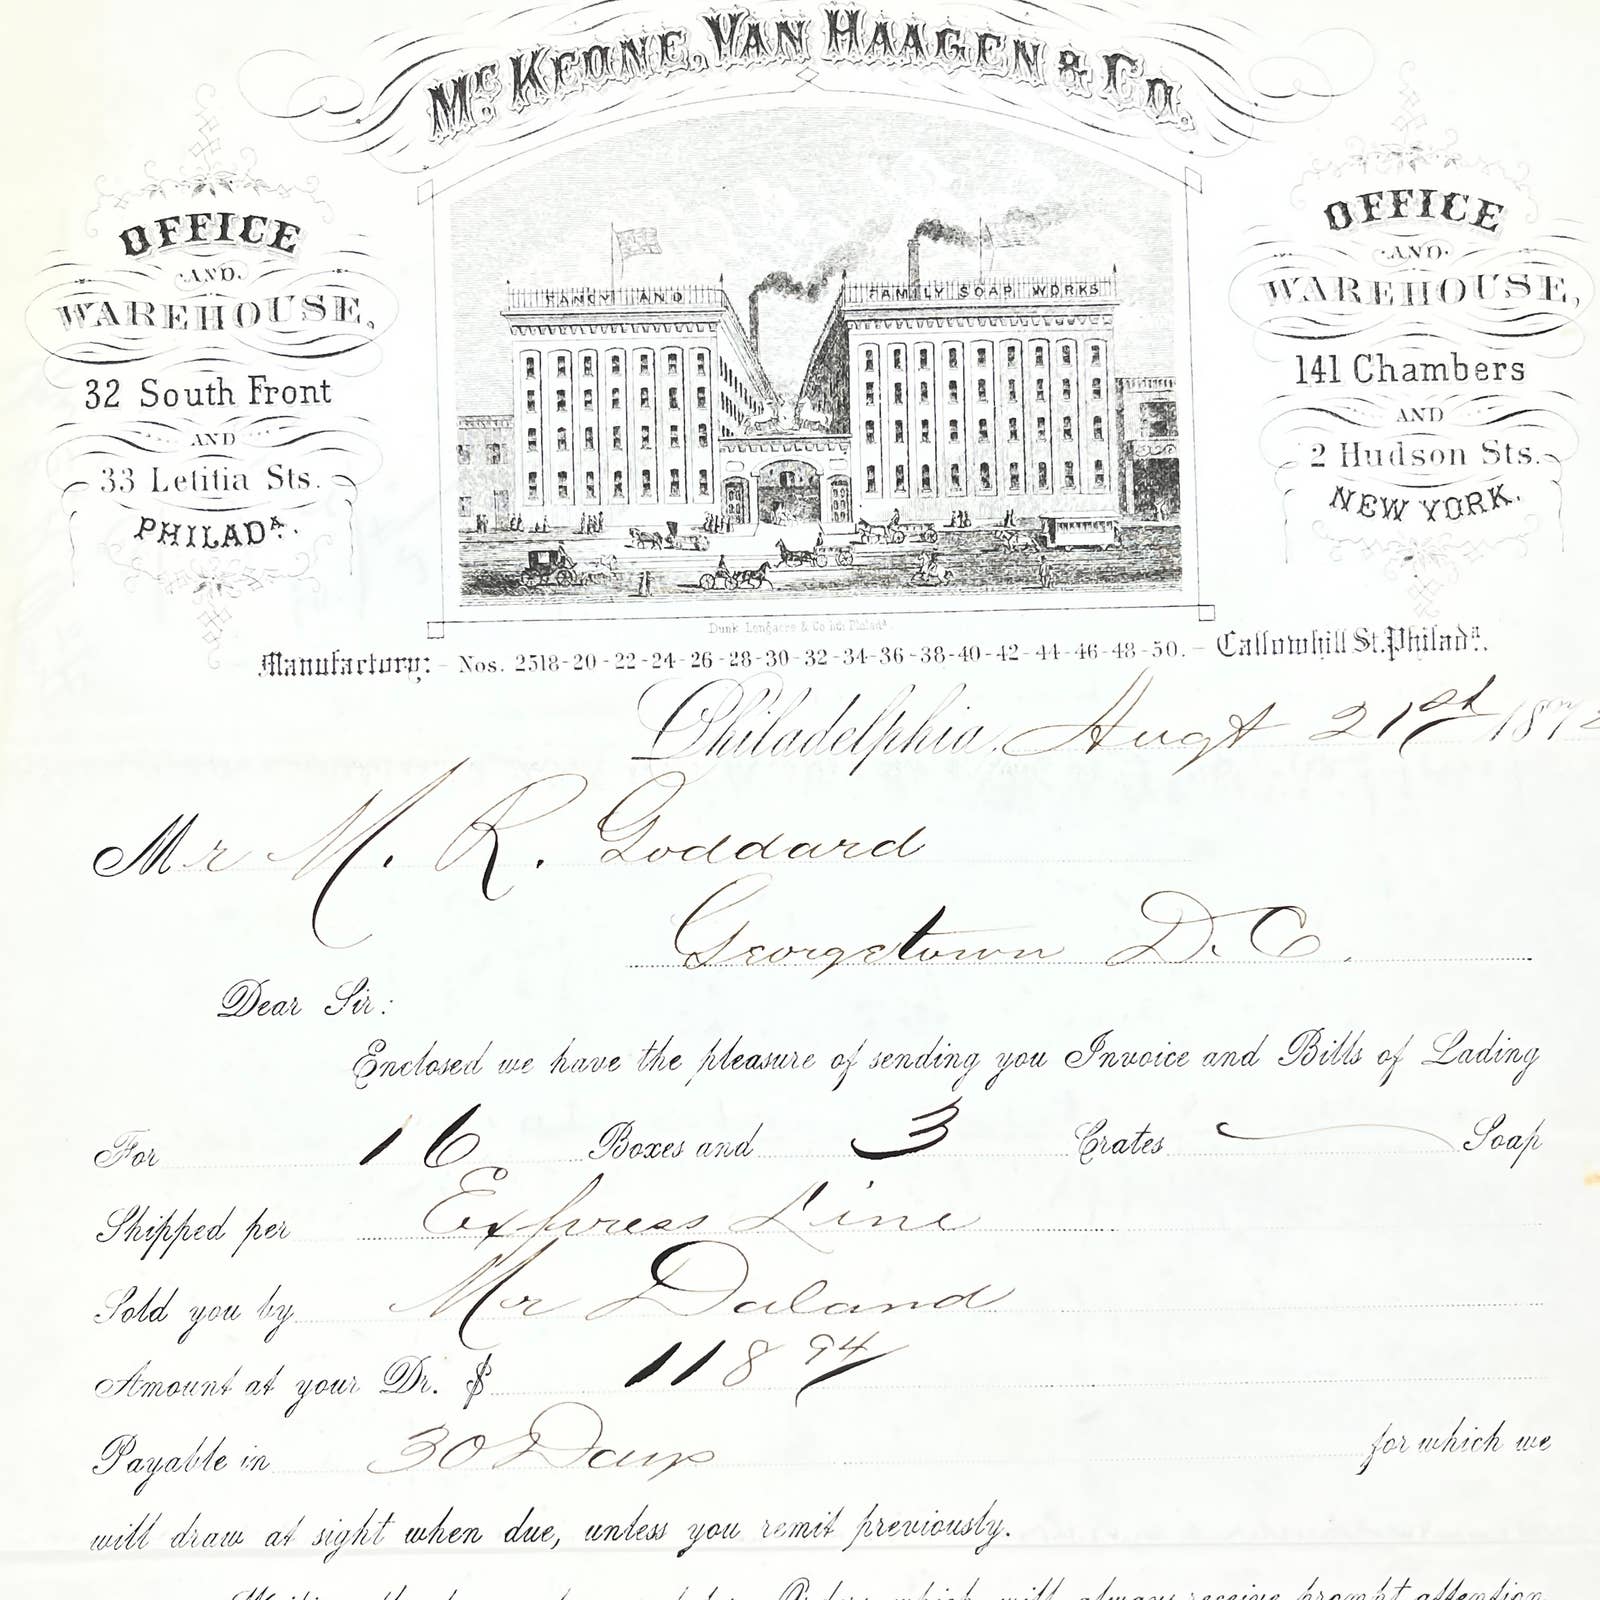 McKEONE, VAN HAAGEN & Co.
OFFICE
AND
WAREHOUSE,
32 South Front
AND
33 Letitia Sts.
PHILADA.
FANCY AND FAMILY SOAP WORKS
OFFICE
AND
WAREHOUSE,
141 Chambers
AND
2 Hudson Sts.
NEW YORK.
Dunk Longacre & Co lith Philada.
Manufactory: - Nos. 2518-20-22-24-26-28-30-32-34-36-38-40-42-44-46-48-50. - Callowhill St. Philada.
Philadelphia, Augt 21st 187
Mr M. R. Goddard
Georgetown D.C.
Dear Sir:
Enclosed we have the pleasure of sending you Invoice and Bills of Lading
For 16 Boxes and 3 Crates Soap
Shipped per Express Line
Sold you by Mr Daland
Amount at your Dr. $ 118 94
Payable in 30 Days for which we
will draw at sight when due, unless you remit previously.
Orders which will always receive prompt attention